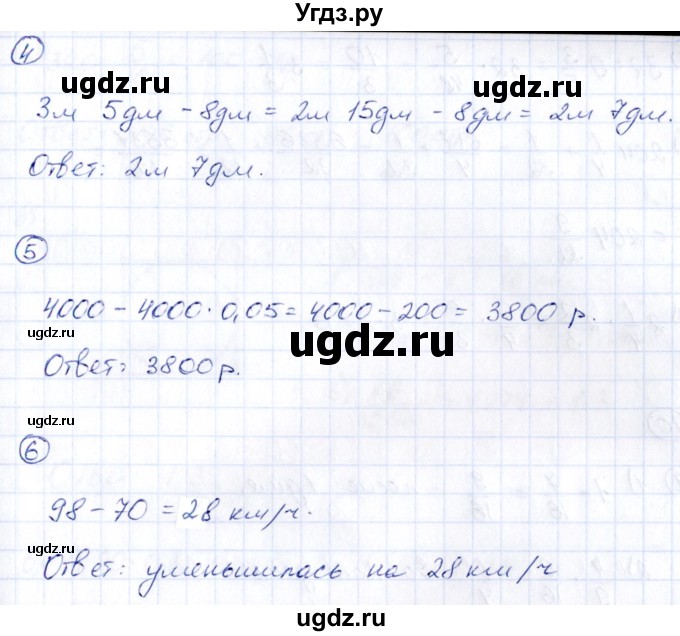 Угдз.ру
4
ugdz.ru
ugdz.ru
3м 5дм - 8дм = 2м 15дм - 8дм = 2м 7дм.
Ответ: 2м 7дм.
5
4000 - 4000 · 0,05 = 4000 - 200 = 3800 р.
ugdz.ru
ugdz.ru
Ответ: 3800 р.
ugdz.ru
6
98 - 70 = 28 км/ч.
ugdz.ru
Ответ: уменьшилась на 28 км/ч
ugdz.ru
ugdz.ru